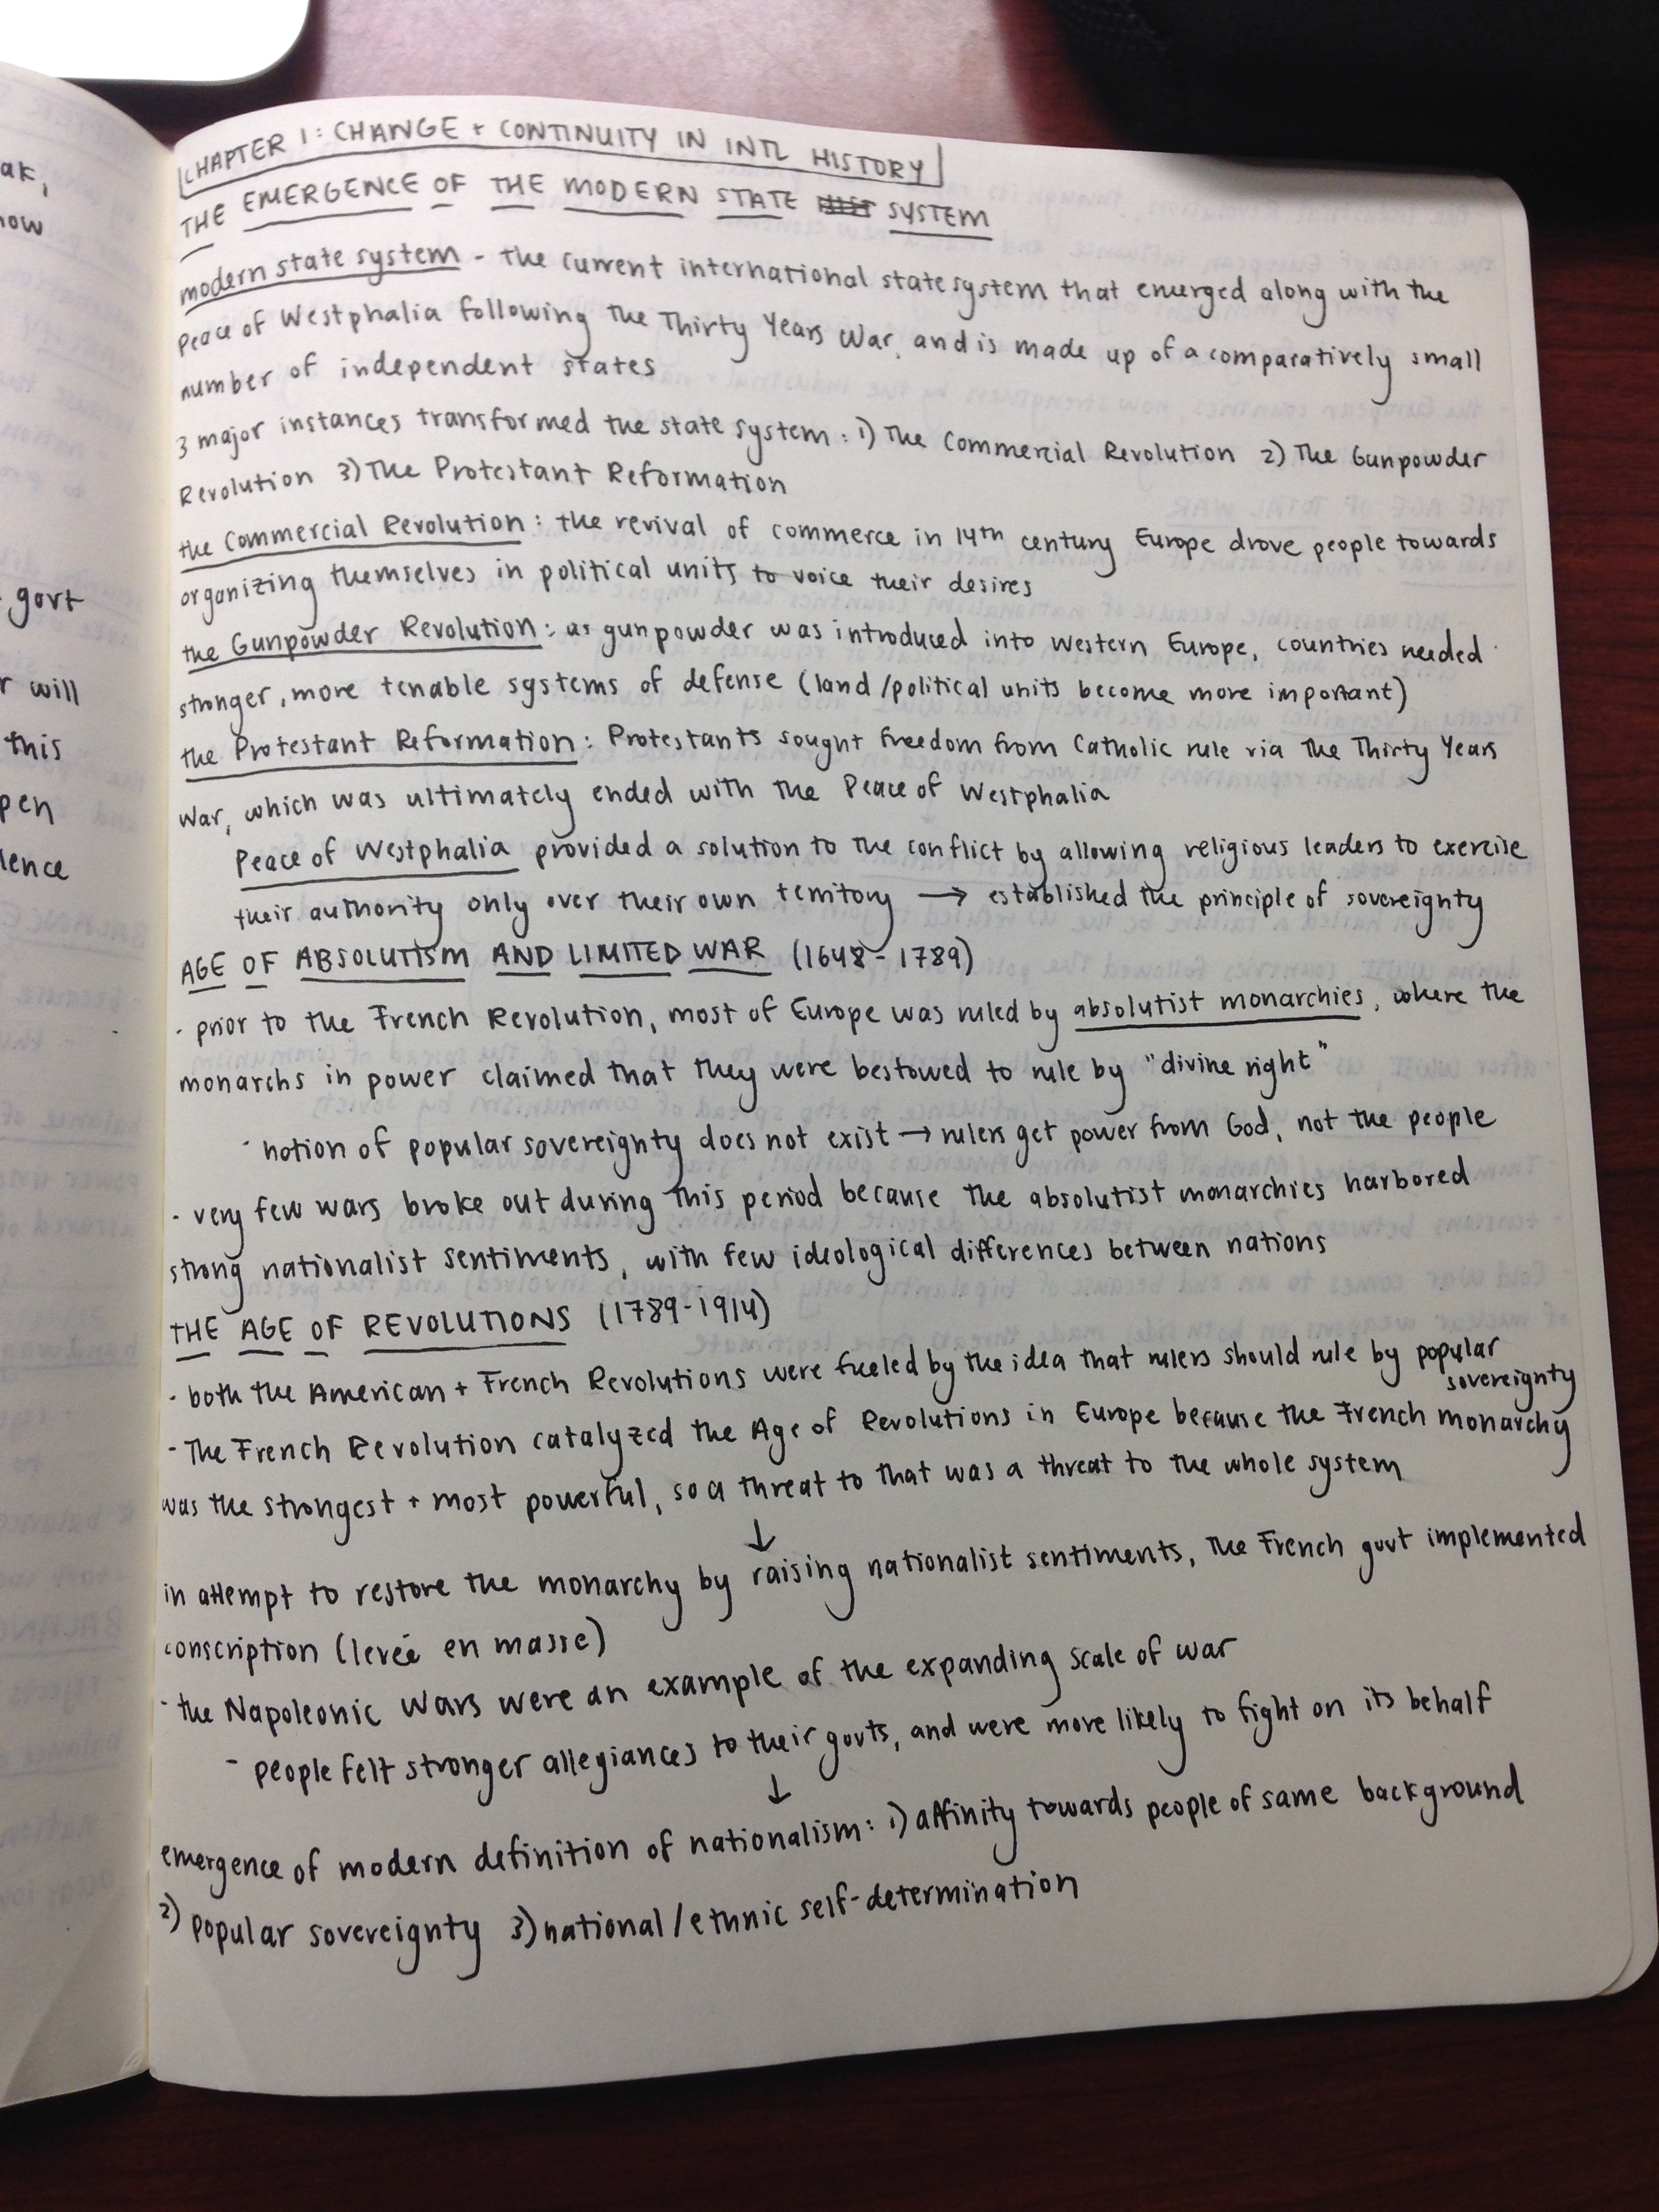 ak,
now
govt
r will
this
pen
lence
CHAPTER 1: CHANGE + CONTINUITY IN INTL HISTORY
THE EMERGENCE OF THE MODERN STATE SYSTEM
modern state system - the current international state system that emerged along with the
Peace of Westphalia following the Thirty Years War, and is made up of a comparatively small
number of independent states
3 major instances transformed the state system: 1) The Commercial Revolution 2) The Gunpowder
Revolution 3) The Protestant Reformation
the Commercial Revolution: the revival of commerce in 14th century Europe drove people towards
organizing themselves in political units to voice their desires
the Gunpowder Revolution: as gunpowder was introduced into Western Europe, countries needed
stronger, more tenable systems of defense (land/political units become more important)
the Protestant Reformation: Protestants sought freedom from Catholic rule via the Thirty Years
War, which was ultimately ended with the Peace of Westphalia
Peace of Westphalia provided a solution to the conflict by allowing religious leaders to exercise
their authority only over their own territory → established the principle of sovereignty
AGE OF ABSOLUTISM AND LIMITED WAR (1648-1789)
- prior to the French Revolution, most of Europe was ruled by absolutist monarchies, where the
monarchs in power claimed that they were bestowed to rule by "divine right"
- notion of popular sovereignty does not exist → rulers get power from God, not the people
- very few wars broke out during this period because the absolutist monarchies harbored
strong nationalist sentiments, with few ideological differences between nations
THE AGE OF REVOLUTIONS (1789-1914)
- both the American + French Revolutions were fueled by the idea that rulers should rule by popular
sovereignty
- The French Revolution catalyzed the Age of Revolutions in Europe because the French monarchy
was the strongest + most powerful, so a threat to that was a threat to the whole system
↓
in attempt to restore the monarchy by raising nationalist sentiments, the French govt implemented
conscription (levée en masse)
- the Napoleonic Wars were an example of the expanding scale of war
- people felt stronger allegiances to their govts, and were more likely to fight on its behalf
↓
emergence of modern definition of nationalism: 1) affinity towards people of same background
2) popular sovereignty 3) national/ethnic self-determination